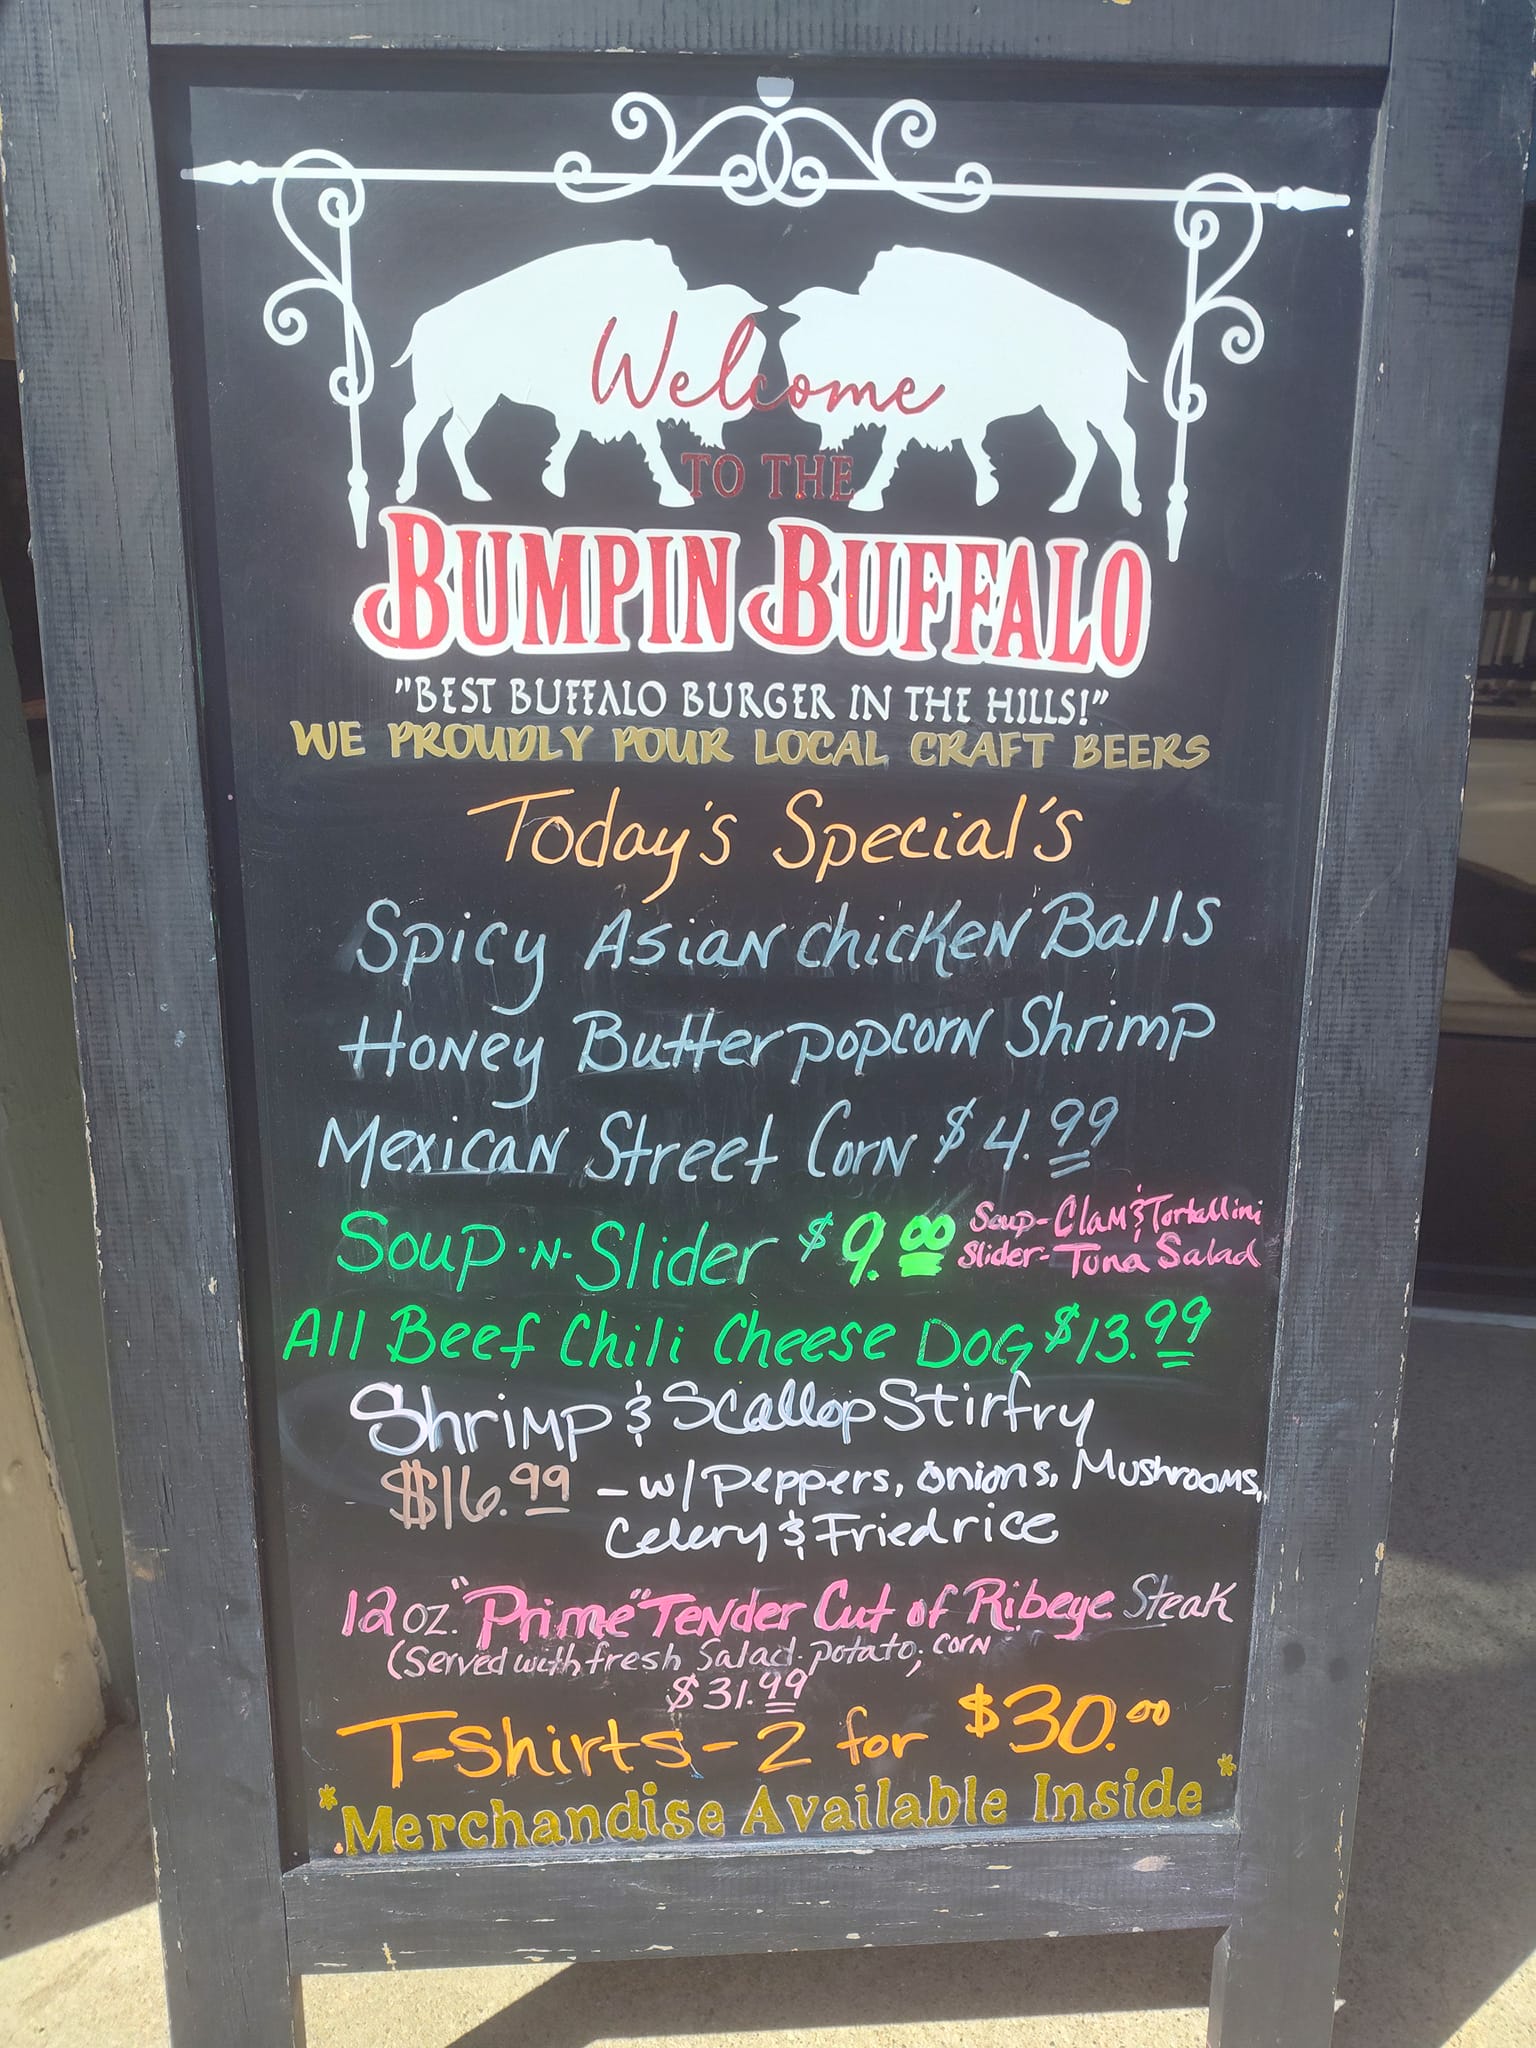 Welcome
TO THE
BUMPIN BUFFALO
"BEST BUFFALO BURGER IN THE HILLS!"
WE PROUDLY POUR LOCAL CRAFT BEERS
Today's Special's
Spicy Asian chicken Balls
Honey Butter popcorn Shrimp
Mexican Street Corn $4.99
Soup-N-Slider $9.00
Soup-Clam & Tortallini
Slider-Tuna Salad
All Beef Chili Cheese Dog $13.99
Shrimp & Scallop Stirfry
$16.99 - w/ Peppers, onions, Mushrooms,
Celery & Fried rice
12 oz. "Prime" Tender Cut of Ribeye Steak
(Served with fresh Salad. potato, corn
$31.99
T-Shirts - 2 for $30.00
*Merchandise Available Inside*